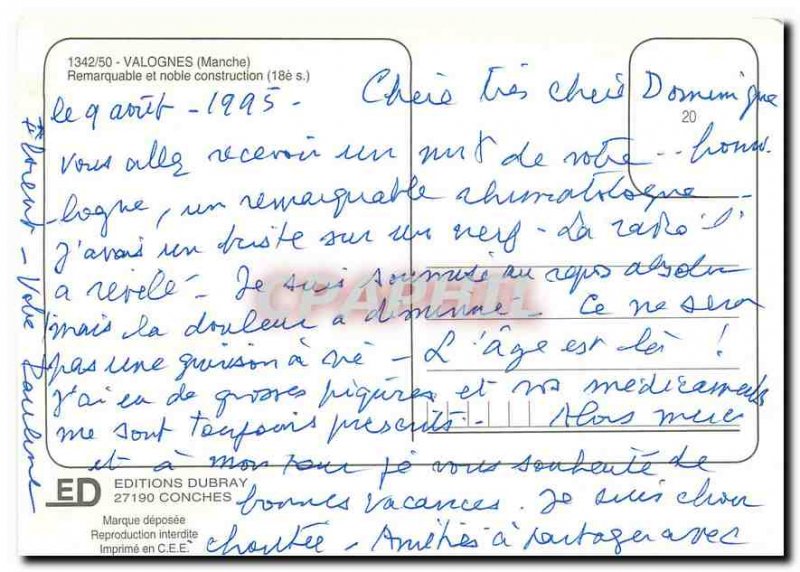 1342/50 - VALOGNES (Manche)
Remarquable et noble construction (18è s.)
20
le 9 août - 1995 - Chère très chère Dominique
vous allez recevoir un mot de votre - homo-
logue, un remarquable rhumatologue
J'avais un sur un nerf - La radio l'
a révélé - Je suis soumise au repos absolu
mais la douleur a diminué - Ce ne sera
pas une guérison à vie - L'âge est là !
J'ai eu de grosses piqûres et vos médicaments
me sont toujours prescrits - Alors merci
et à mon tour je vous souhaite de
bonnes vacances. Je suis chou
choutée - Amitiés à partager avec
Florent - Votre Pauline
CPARHTL
ED EDITIONS DUBRAY
27190 CONCHES
Marque déposée
Reproduction interdite
Imprimé en C.E.E.